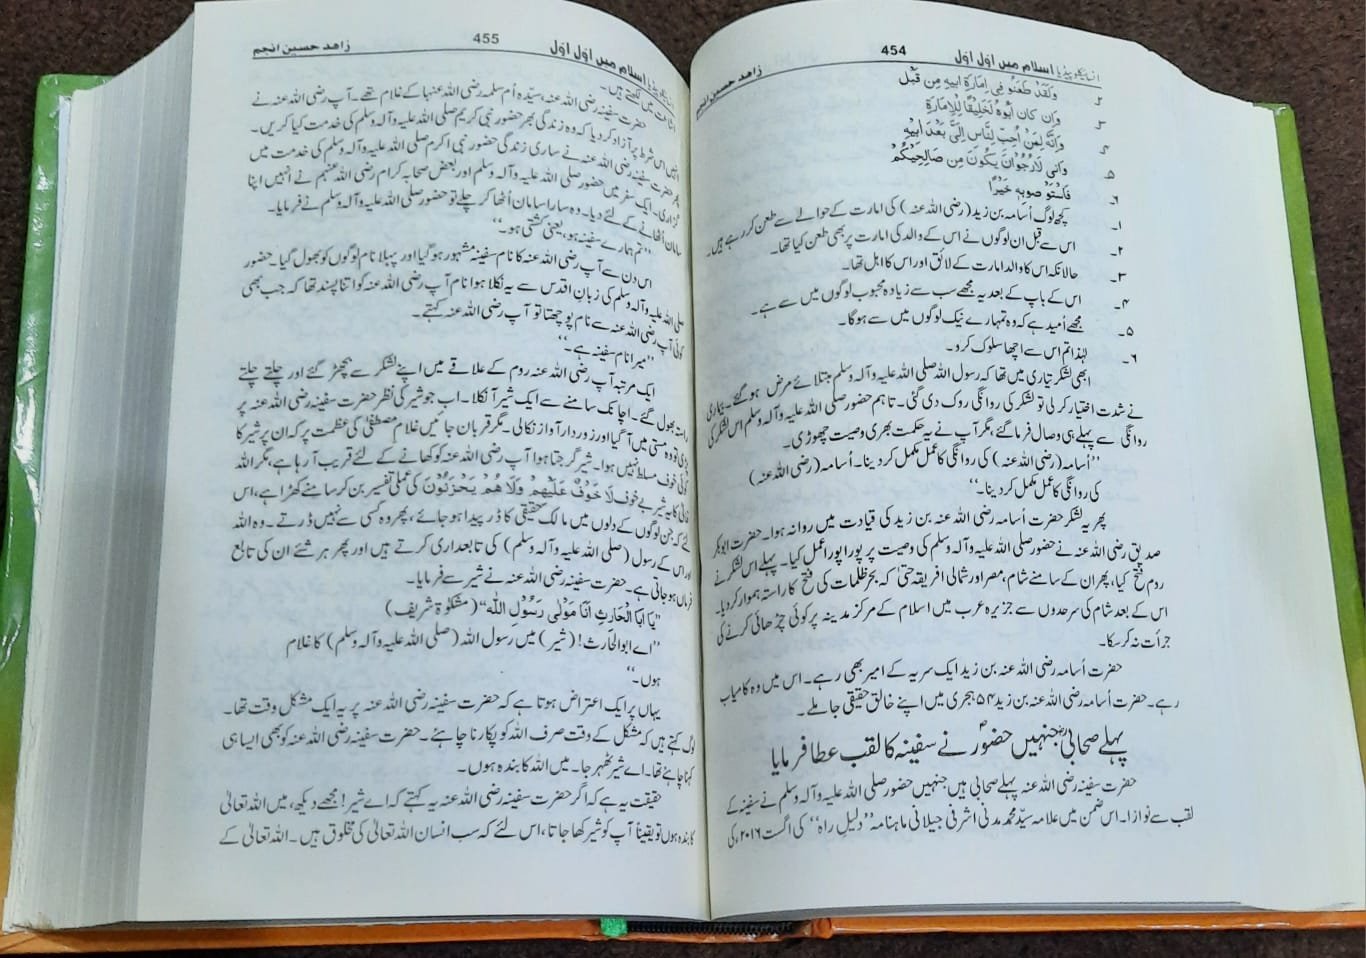 انسائیکلوپیڈیا اسلام میں اوّل اوّل
454
زاھد حسین انجم
۲۔ وَلَقَدْ طَعَنُو فِی اِمَارَۃِ اَبِیْہِ مِن قَبْل
۳۔ وَاِن کَانَ اَبُوْہُ لَخَلِیْقًا لِلْاِمَارَۃِ
۴۔ وَاِنَّہٗ لَمِنْ اَحِبّ لنَّاسِ اِلَیَّ بَعْدَ اَبِیْہِ
۵۔ وَاَنی لَارْجُوْاَنْ یَّکُوْنَ مِن صَالِحِیْکُمْ
۶۔ فَاسْتَوْ صوبِہٖ خَیْرًا
۱۔ کچھ لوگ اُسامہ بن زید (رضی اللہ عنہ) کی امارت کے حوالے سے طعن کر رہے ہیں۔
۲۔ اس سے قبل ان لوگوں نے اس کے والد کی امارت پر بھی طعن کیا تھا۔
۳۔ حالانکہ اس کا والد امارت کے لائق اور اس کا اہل تھا۔
۴۔ اس کے باپ کے بعد یہ مجھے سب سے زیادہ محبوب لوگوں میں سے ہے۔
۵۔ مجھے اُمید ہے کہ وہ تمہارے نیک لوگوں میں سے ہوگا۔
۶۔ لہٰذا تم اس سے اچھا سلوک کرو۔
ابھی لشکر تیاری میں تھا کہ رسول اللہ صلی اللہ علیہ وآلہ وسلم مبتلائے مرض ہو گئے۔ بیماری
نے شدت اختیار کر لی تو لشکر کی روانگی روک دی گئی۔ تاہم حضور صلی اللہ علیہ وآلہ وسلم اس لشکر کی
روانگی سے پہلے ہی وصال فرما گئے، مگر آپ نے یہ حکمت بھری وصیت چھوڑی۔
’’اُسامہ (رضی اللہ عنہ) کی روانگی کا عمل مکمل کر دینا۔ اُسامہ (رضی اللہ عنہ)
کی روانگی کا عمل مکمل کر دینا۔‘‘
پھر یہ لشکر حضرت اُسامہ رضی اللہ عنہ بن زید کی قیادت میں روانہ ہوا۔ حضرت ابوبکر
صدیق رضی اللہ عنہ نے حضور صلی اللہ علیہ وآلہ وسلم کی وصیت پر پورا پورا عمل کیا۔ پہلے اس لشکر نے
روم فتح کیا، پھر ان کے سامنے شام، مصر اور شمالی افریقہ حتیٰ کہ بحرِ ظلمات کی فتح کا راستہ ہموار کر دیا۔
اس کے بعد شام کی سرحدوں سے جزیرہ عرب میں اسلام کے مرکز مدینہ پر کوئی چڑھائی کرنے کی
جرأت نہ کر سکا۔
حضرت اُسامہ رضی اللہ عنہ بن زید ایک سریہ کے امیر بھی رہے۔ اس میں وہ کامیاب
رہے۔ حضرت اُسامہ رضی اللہ عنہ بن زید ۵۴ ہجری میں اپنے خالقِ حقیقی جا ملے۔
پہلے صحابیؓ جنہیں حضورؐ نے سفینہ کا لقب عطا فرمایا
حضرت سفینہ رضی اللہ عنہ پہلے صحابی ہیں جنہیں حضور صلی اللہ علیہ وآلہ وسلم نے سفینہ کے
لقب سے نوازا۔ اس ضمن میں علامہ سیّد محمد مدنی اشرفی جیلانی ماہنامہ ’’دلیلِ راہ‘‘ کی اگست ۲۰۱۶ء کی
انسائیکلوپیڈیا اسلام میں اوّل اوّل
455
زاھد حسین انجم
اشاعت میں لکھتے ہیں۔
حضرت سفینہ رضی اللہ عنہ، سیّدہ اُم سلمہ رضی اللہ عنہا کے غلام تھے۔ آپ رضی اللہ عنہ نے
انہیں اس شرط پر آزاد کر دیا کہ وہ زندگی بھر حضور نبی کریم صلی اللہ علیہ وآلہ وسلم کی خدمت کیا کریں۔
پھر حضرت سفینہ رضی اللہ عنہ نے ساری زندگی حضور نبی اکرم صلی اللہ علیہ وآلہ وسلم کی خدمت میں
گزاری۔ ایک سفر میں حضور صلی اللہ علیہ وآلہ وسلم اور بعض صحابہ کرام رضی اللہ عنہم نے انہیں اپنا
سامان اُٹھانے کے لئے دیا۔ وہ سارا سامان اُٹھا کر چلے تو حضور صلی اللہ علیہ وآلہ وسلم نے فرمایا۔
’’تم ہمارے سفینہ ہو، یعنی کشتی ہو۔‘‘
اس دن سے آپ رضی اللہ عنہ کا نام سفینہ مشہور ہو گیا اور پہلا نام لوگوں کو بھول گیا۔ حضور
صلی اللہ علیہ وآلہ وسلم کی زبانِ اقدس سے یہ نکلا ہوا نام آپ رضی اللہ عنہ کو اتنا پسند تھا کہ جب بھی
کوئی آپ رضی اللہ عنہ سے نام پوچھتا تو آپ رضی اللہ عنہ کہتے۔
’’میرا نام سفینہ ہے۔‘‘
ایک مرتبہ آپ رضی اللہ عنہ روم کے علاقے میں اپنے لشکر سے بچھڑ گئے اور چلتے چلتے
راستہ بھول گئے۔ اچانک سامنے سے ایک شیر آ نکلا۔ اب جو شیر کی نظر حضرت سفینہ رضی اللہ عنہ پر
پڑی تو وہ مستی میں آ گیا اور زوردار آواز نکالی۔ مگر قربان جائیں غلامِ مصطفیٰ کی عظمت پر کہ ان پر شیر کا
کوئی خوف مسلط نہیں ہوا۔ شیر گرجتا ہوا آپ رضی اللہ عنہ کو کھانے کے لئے قریب آ رہا ہے، مگر اللہ
تعالیٰ کا یہ شیر بے خوف لَا خَوْفٌ عَلَیْھِمْ وَلَا ھُمْ یَحْزَنُوْن کی عملی تفسیر بن کر سامنے کھڑا ہے، اس
لئے کہ جن لوگوں کے دلوں میں مالکِ حقیقی کا ڈر پیدا ہو جائے، پھر وہ کسی سے نہیں ڈرتے۔ وہ اللہ
اور اس کے رسول (صلی اللہ علیہ وآلہ وسلم) کی تابعداری کرتے ہیں اور پھر ہر شئے ان کی تابع
فرمان ہو جاتی ہے۔ حضرت سفینہ رضی اللہ عنہ نے شیر سے فرمایا۔
’’یَا اَبَا الْحَارِثِ اَنَا مَوْلٰی رَسُوْلِ اللّٰہ‘‘ (مشکوٰۃ شریف)
’’اے ابوالحارث! (شیر) میں رسول اللہ (صلی اللہ علیہ وآلہ وسلم) کا غلام
ہوں۔‘‘
یہاں پر ایک اعتراض ہوتا ہے کہ حضرت سفینہ رضی اللہ عنہ پر یہ ایک مشکل وقت تھا۔
لوگ کہتے ہیں کہ مشکل کے وقت صرف اللہ کو پکارنا چاہئے۔ حضرت سفینہ رضی اللہ عنہ کو بھی ایسا ہی
کہنا چاہئے تھا۔ اے شیر ٹھہر جا۔ میں اللہ کا بندہ ہوں۔
حقیقت یہ ہے کہ اگر حضرت سفینہ رضی اللہ عنہ یہ کہتے کہ اے شیر! مجھے دیکھ، میں اللہ تعالیٰ
کا بندہ ہوں تو یقیناً آپ کو شیر کھا جاتا، اس لئے کہ سب انسان اللہ تعالیٰ کی مخلوق ہیں۔ اللہ تعالیٰ کے